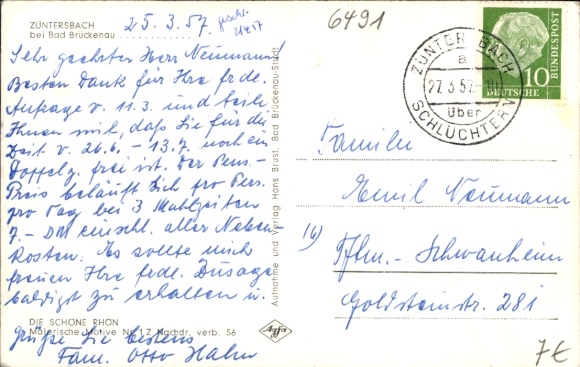 ZÜNTERSBACH
bei Bad Brückenau
25.3.57.
geschr.
21.4.57
6491
Sehr geehrter Herr Neumann!
Besten Dank für Ihre frdl.
Anfrage v. 11.3. und teile
Ihnen mit, daß Sie für die
Zeit v. 26.6. - 13.7. noch ein
Doppelz. frei ist. Der Pens.-
Preis beläuft sich pro Pers.
pro Tag bei 3 Mahlzeiten
7.- DM einschl. aller Neben-
kosten. Es sollte mich
freuen Ihre frdl. Zusage
baldigst zu erhalten u.
grüße Sie bestens
Fam. Otto Hahn
DIE SCHÖNE RHÖN
Malerische Motive Nr. 1 Z Nachdr. verb. 56
Agfa
Aufnahme und Verlag Hans Brust, Bad Brückenau-Stadt
ZÜNTERSBACH
a
27.3.57
über
SCHLÜCHTERN
10
DEUTSCHE
BUNDESPOST
Familie
Emil Neumann
16)
Ffm.- Schwanheim
Goldsteinstr. 281
7€